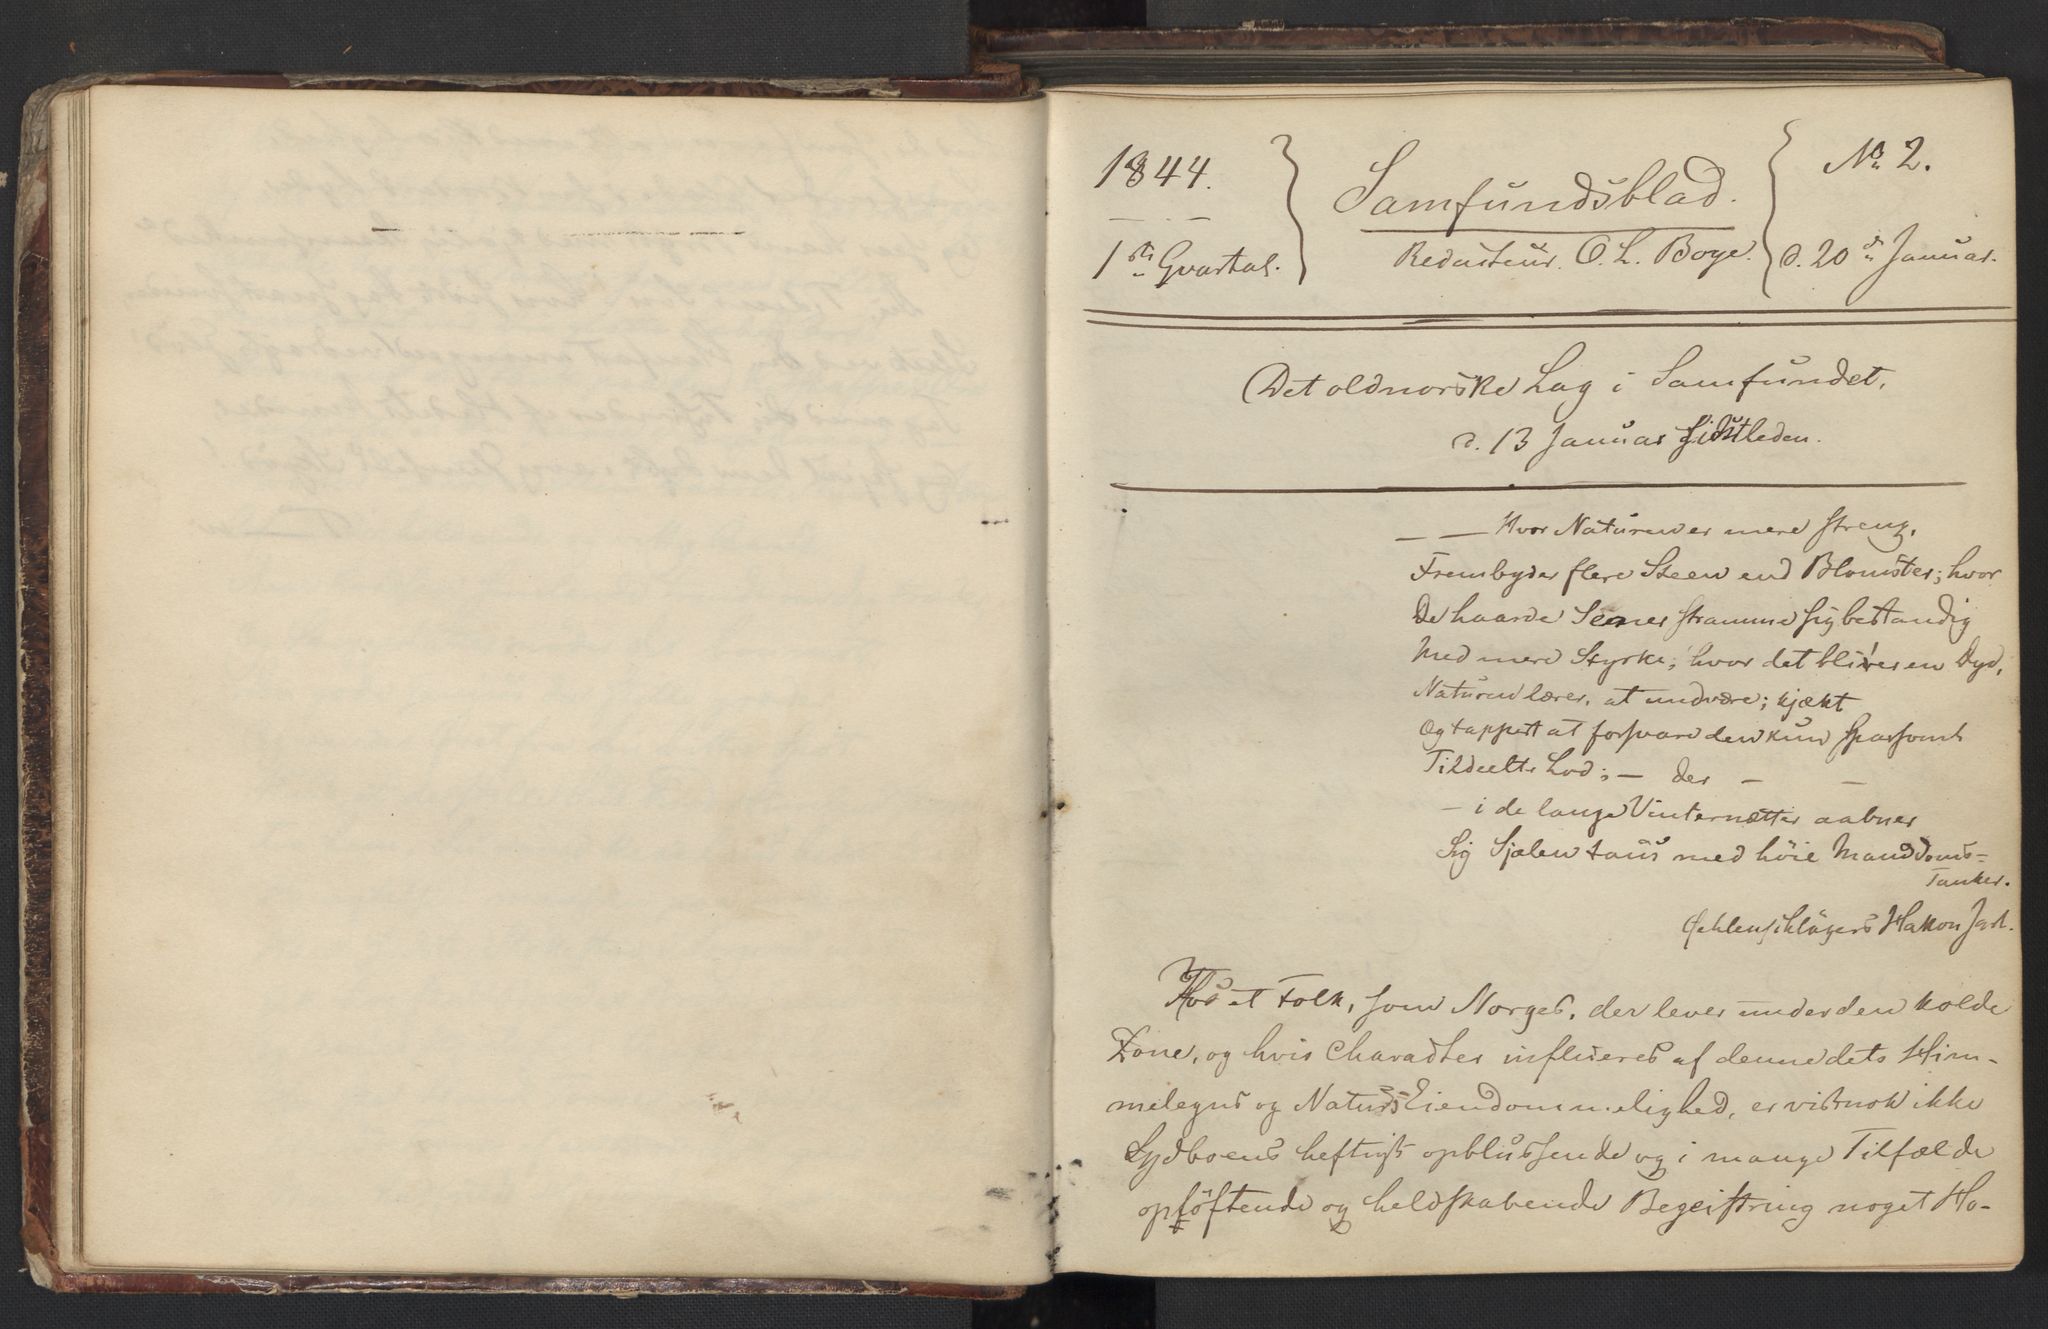 1844.
1ste Qvartal.
Samfundsblad.
Redacteur. O. L. Boye.
No 2.
d. 20de Januar.
Det oldnorske Lag i Samfundet,
d. 13 Januar sidstleden.
— — Hvor Naturen er mere streng,
Frembyder flere Steen end Blomster; hvor
De haarde Sener stramme sig bestandig
Med mere Styrke; hvor det bliver en Dyd,
Naturen lærer, at undvære; kjækt
Og tappert at forsvare den kun sparsomt
Tildeelte Lod; — der — —
— i de lange Vinternætter aabner
Sig Sjælen taus med höie Manddoms-
Tanker.
Oehlenschlägers Hakon Jarl.
Hos et Folk, som Norges, der lever under den kolde
Zone, og hvis Charackter influeres af denne dets Him-
melegns og Naturs Eiendommelighed, er vistnok ikke
Sydboens heftigt opblussende og i mange Tilfælde
opløftende og heldskabende Begeistring noget Ho-